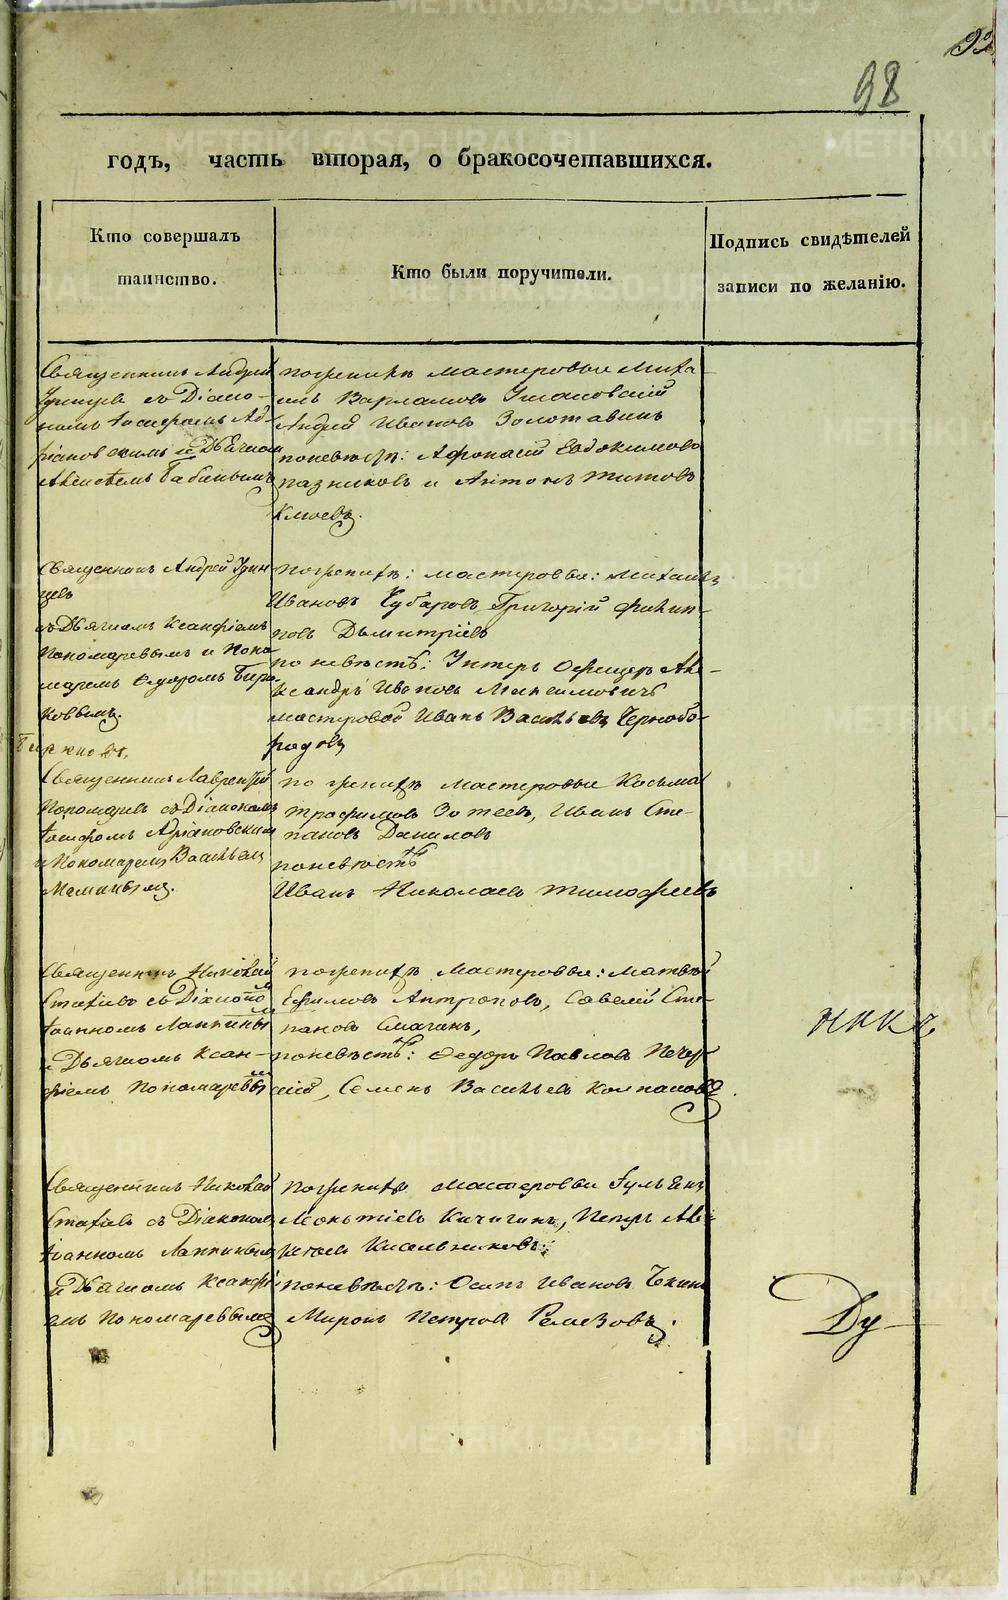 98
годъ, часть вторая, о бракосочетавшихся.
Кто совершалъ
таинство.
Кто были поручители.
Подпись свидѣтелей
записи по желанію.
Священникъ Андрей
съ Діако-
номъ Іосифомъ Ад-
ріановскимъ и Дьячкомъ
Алексѣемъ Бабинымъ
по женихѣ мастеровые Миха-
илъ Варламовъ
Андрей Ивановъ Золотавинъ
по невѣстѣ: Афонасій Евдокимовъ
и Антонъ Титовъ
Клюевъ.
Священникъ Андрей Удин
цевъ
съ Дьячкомъ Ксанфіемъ
Пономаревымъ и Поно
маремъ Ѳедоромъ Бирю
ковымъ.
по женихѣ: мастеровые: Михаилъ
Ивановъ Чубаровъ Григорій Филип-
повъ Дьмитріевъ
по невѣстѣ: Унтеръ Офицеръ Але-
ксандръ Ивановъ Максимовичъ
мастеровой Иванъ Васильевъ Чернобо-
родовъ
Священникъ Лаврентій
Пономаревъ съ Діакономъ
Іосифомъ Адріановскимъ
и Пономаремъ Васильемъ
Маминымъ.
по женихѣ мастеровые Косьма
Трофимовъ Зотеевъ, Иванъ Сте-
пановъ Даниловъ
по невѣстѣ
Иванъ Николаевъ Тимофеевъ
Священникъ Николай
съ Діакономъ
Іоанномъ Лаптинымъ
и Дьячкомъ Ксан-
фіемъ Пономаревым
по женихѣ мастеровые: Матвѣй
Ефимовъ Антроповъ, Савелій Сте-
пановъ Смагинъ,
по невѣстѣ: Ѳедоръ Павловъ
Семенъ Васильевъ Колпаковъ.
Священникъ Николай
съ Діакономъ
Іоанномъ Лаптинымъ
и Дьячкомъ Ксанфі
емъ Пономаревымъ
по женихѣ мастеровые Гульянъ
Леонтіевъ Кичигинъ, Петръ Але-
ксѣевъ Кисельниковъ:
по невѣстѣ: Осипъ Ивановъ
Миронъ Петровъ Ремезовъ.
Ду
METRIKI.GASO-URAL.RU